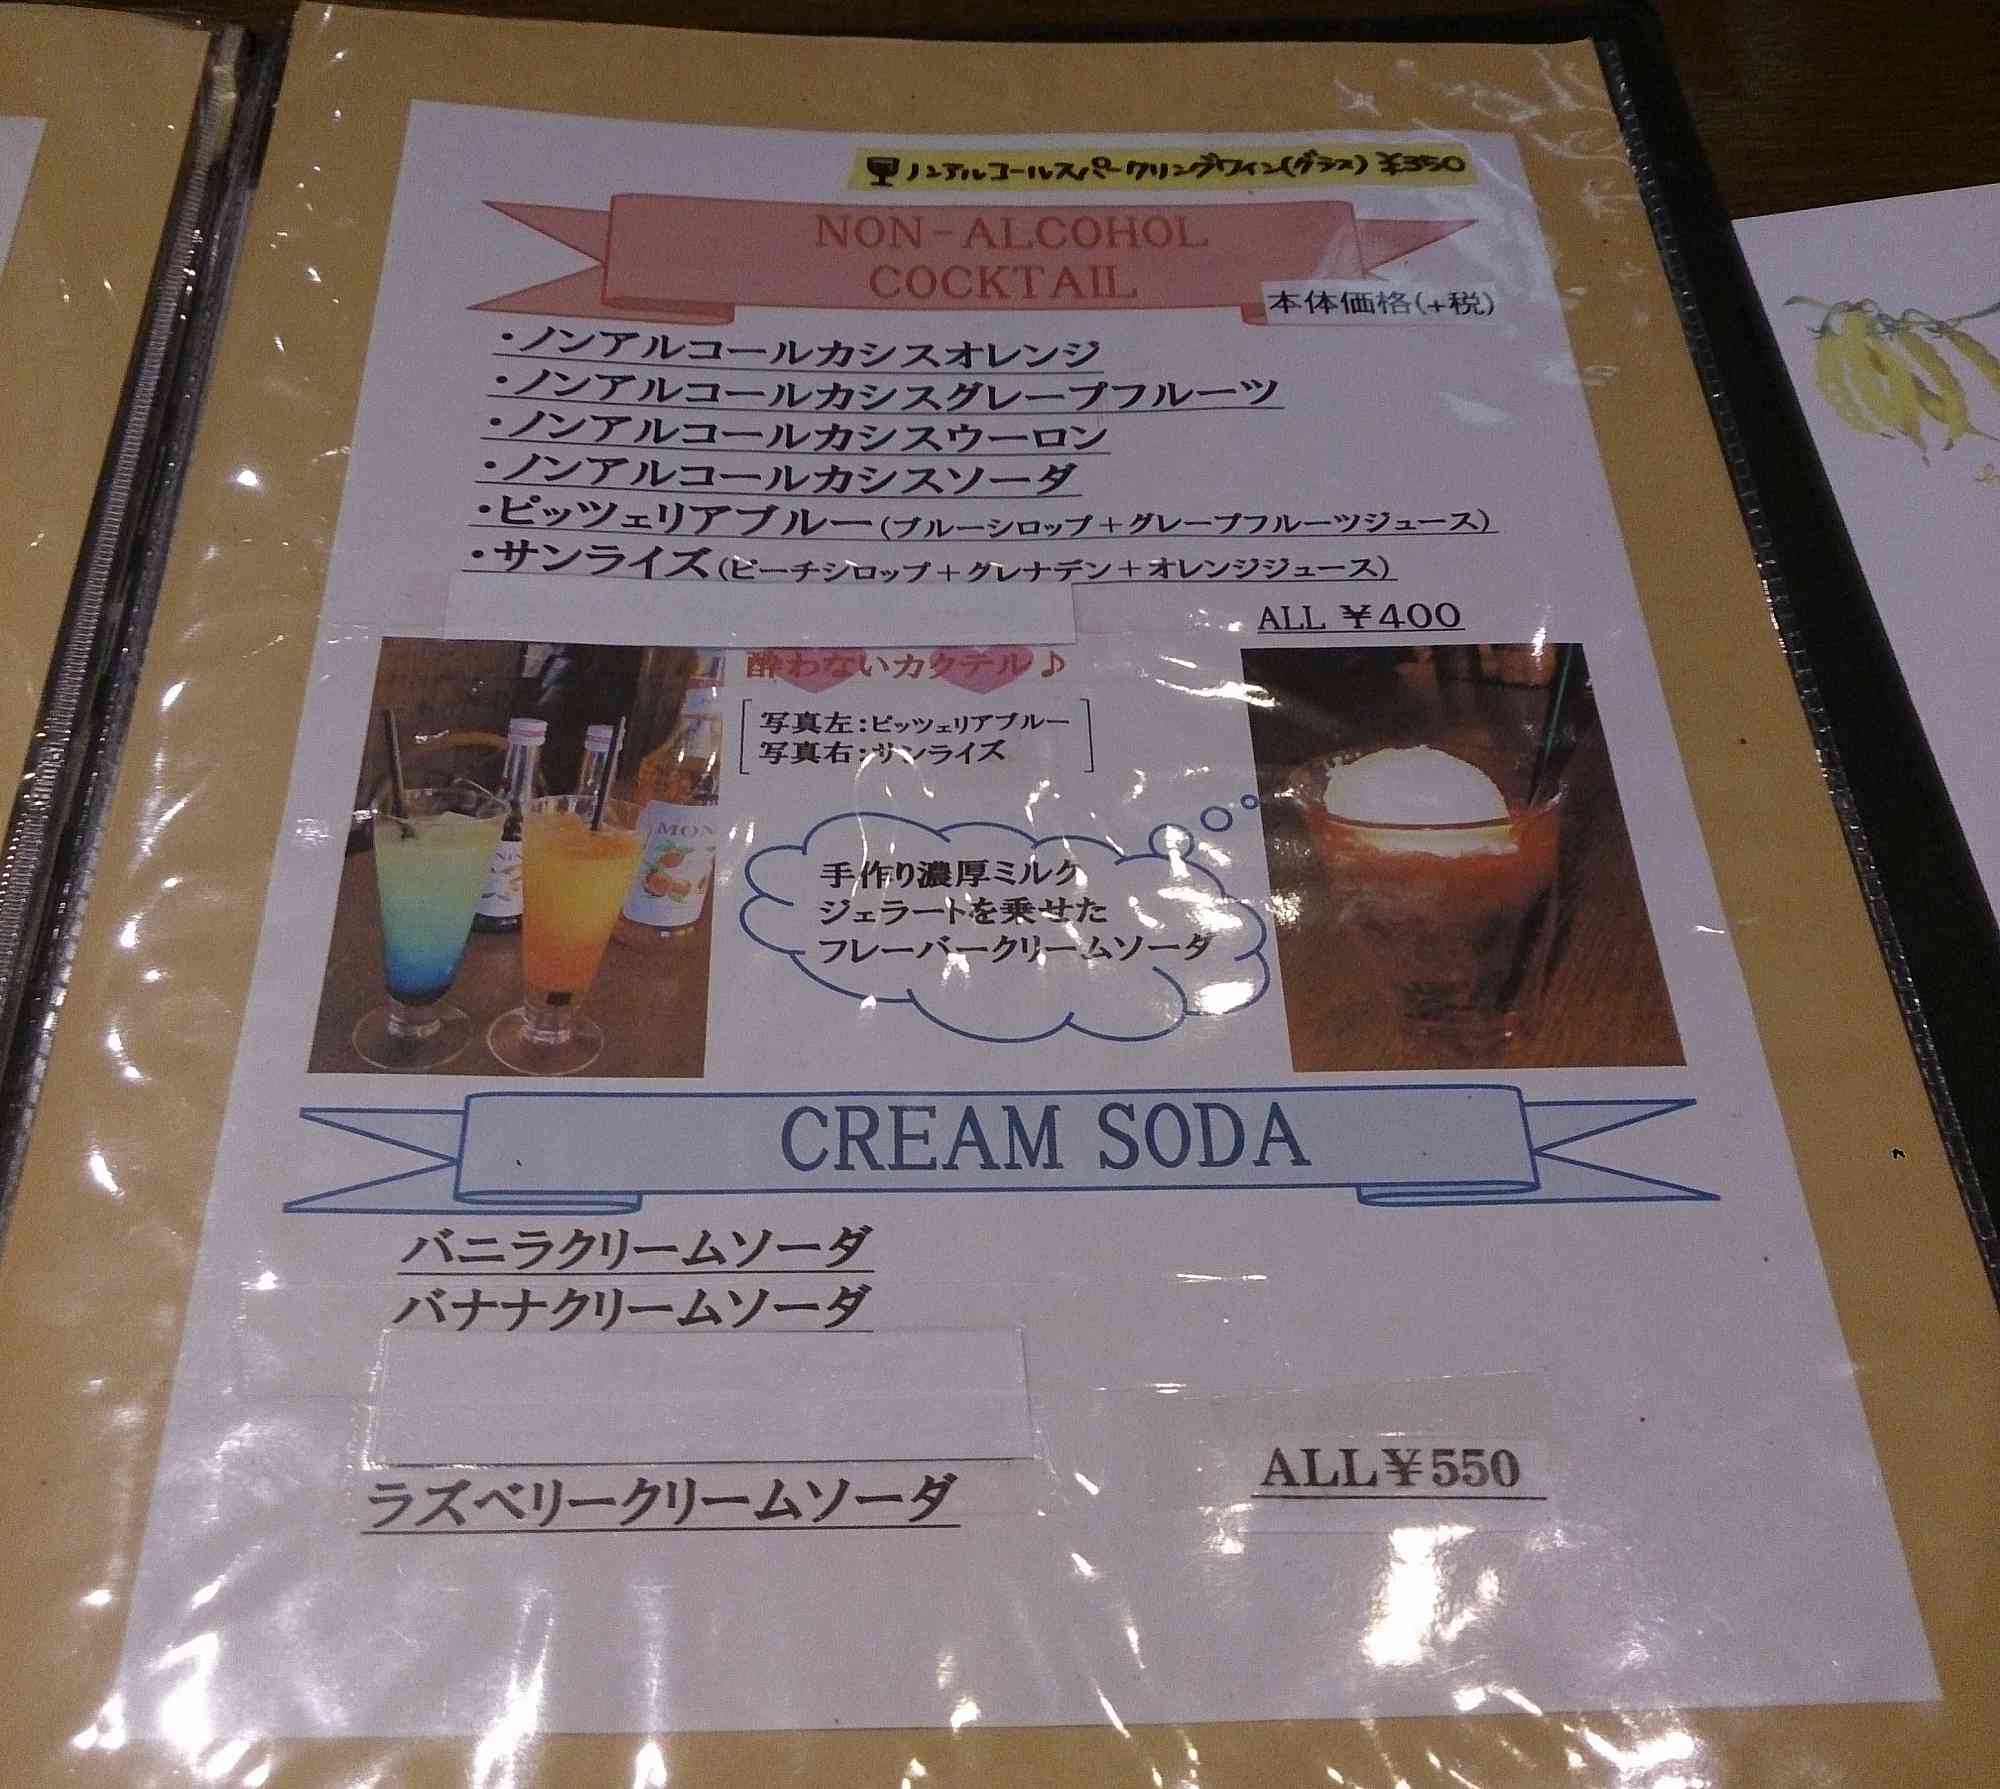 ノンアルコールスパークリングワイン(グラス) ¥350
NON-ALCOHOL
COCKTAIL
本体価格(+税)
・ノンアルコールカシスオレンジ
・ノンアルコールカシスグレープフルーツ
・ノンアルコールカシスウーロン
・ノンアルコールカシスソーダ
・ピッツェリアブルー(ブルーシロップ+グレープフルーツジュース)
・サンライズ(ピーチシロップ+グレナデン+オレンジジュース)
ALL ¥400
酔わないカクテル♪
写真左:ピッツェリアブルー
写真右:サンライズ
MON
手作り濃厚ミルク
ジェラートを乗せた
フレーバークリームソーダ
CREAM SODA
バニラクリームソーダ
バナナクリームソーダ
ラズベリークリームソーダ
ALL¥550